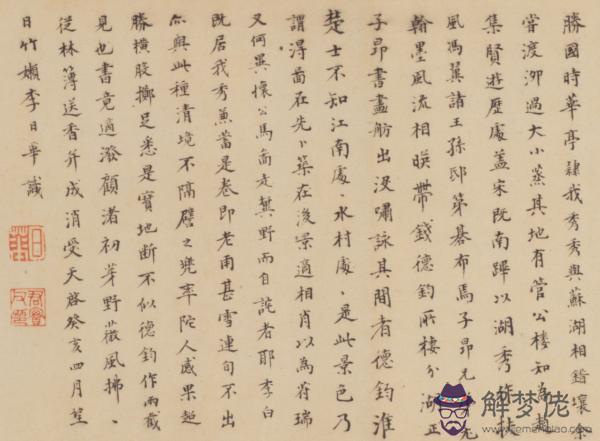 勝國時華亭隸我秀秀與蘇湖相錯壤
嘗渡泖過大小蒸其地有管公樓知為
集賢遊歷處蓋宋既南蹕以湖秀作
風馮翼諸王孫邸第碁布焉子昂
翰墨風流相暎帶錢德鈞所棲分湖正
子昂書畫舫出沒嘯詠其間者德鈞淮
楚士不知江南處、水村處、是此景色乃
謂得啚在先卜築在後景適相肖以為符瑞
又何異懷公馬啚走冀野而自詫者耶李白
既居我秀蕉當是卷即老甫甚雪連旬不出
亦與此種清境不隔礕之兜率陀人感果超
勝橫股擲足悉是寶地斷不似德鈞作兩截
見也書竟適潑顧渚初芽野薇風拂、
從林薄送香并成消受天啓癸亥四月望
日竹嬾李日華識
解梦佬
www.jiemenglao.com